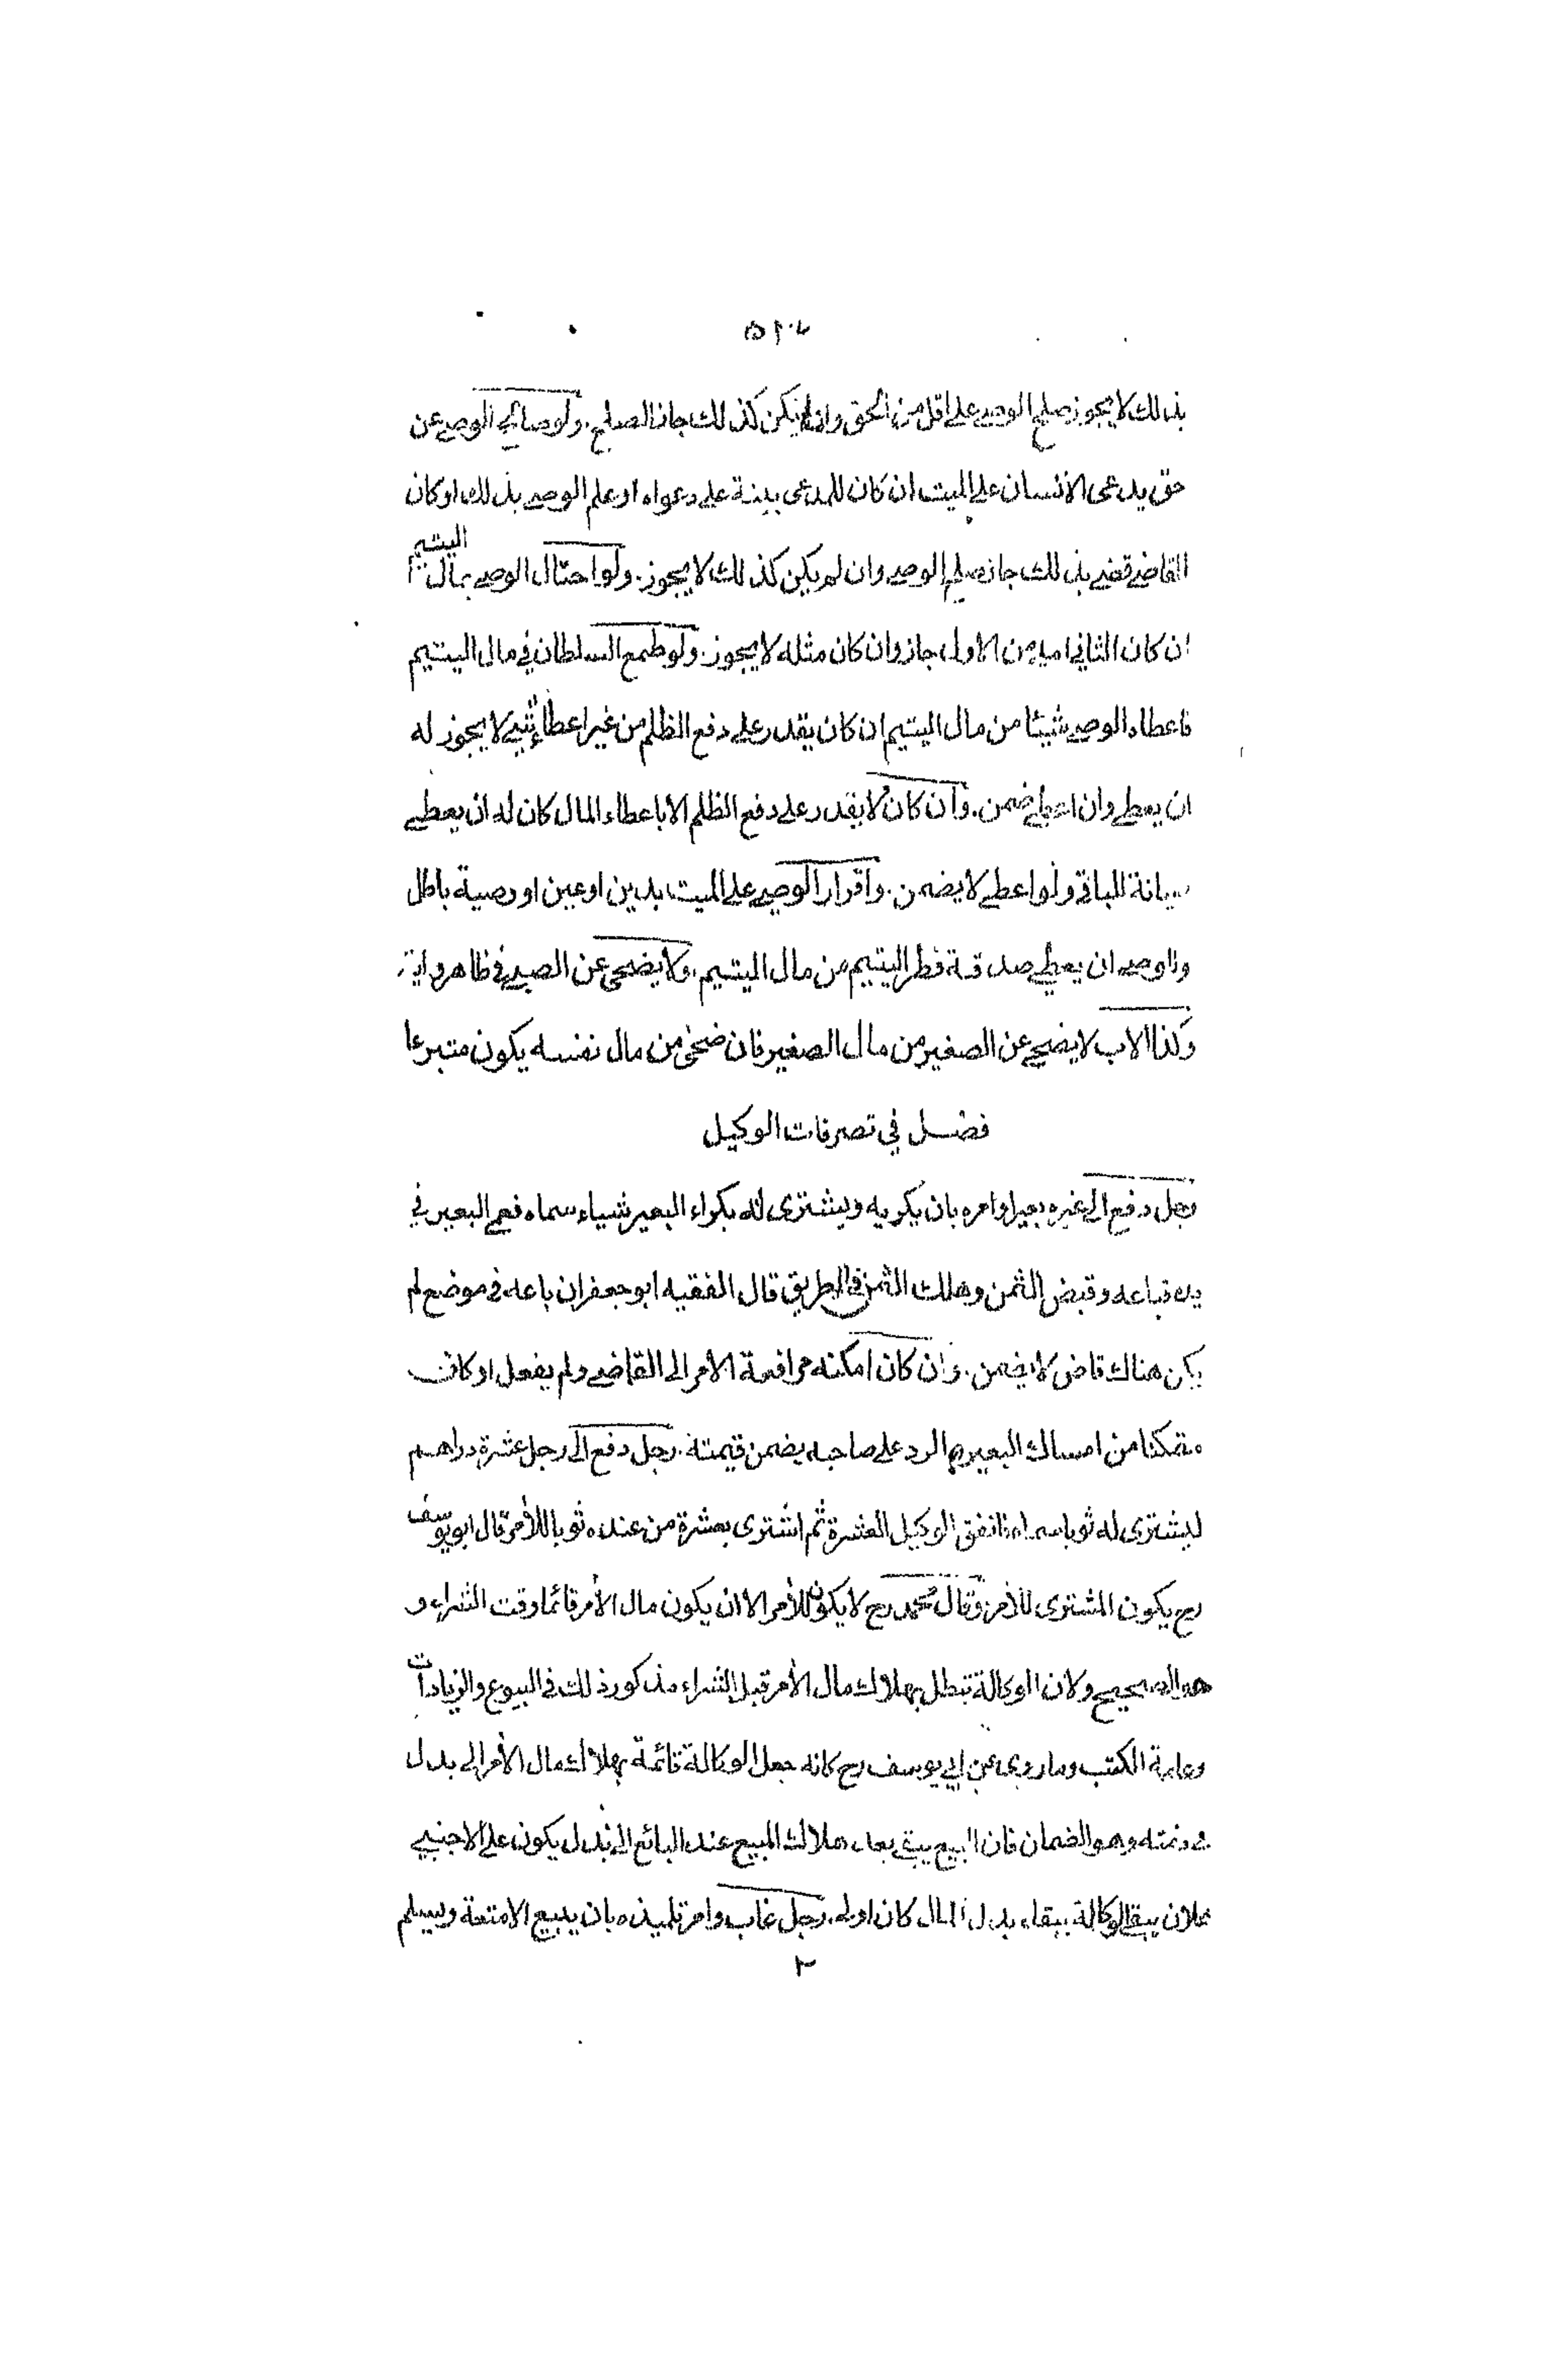 بذلك لا يجوز صلح الوصى على اقل من الحق وان لم يكن كذلك جاز الصلح. ولو صالح الوصى عن
حق يدعى الانسان على الميت ان كان للمدعى بينة على دعواه او علم الوصى بذلك او كان
القاضى قضى بذلك جاز صلح الوصى وان لم يكن كذلك لا يجوز. ولو احتال الوصى بمال اليتيم
ان كان الثاني املى من الاول جاز وان كان مثله لا يجوز. ولو طمع السلطان في مال اليتيم
فاعطاه الوصى شيئا من مال اليتيم ان كان يقدر على دفع الظلم من غير اعطاء شىء لا يجوز له
ان يعطى وان اعطى ضمن. وان كان لا يقدر على دفع الظلم الا باعطاء المال كان له ان يعطى
صيانة للباقى ولو اعطى لا يضمن. واقرار الوصى على الميت بدين او عين او وصية باطل
وللوصى ان يعطى صدقة فطر اليتيم من مال اليتيم. ولا يضحى عن الصبى فى ظاهر رواية
وكذا الاب لا يضحى عن الصغير من مال الصغير فان ضحى من مال نفسه يكون متبرعا
فصل في تصرفات الوكيل
رجل دفع الى غيره بعيرا وامره بان يكريه ويشترى له بكراء البعير شياء سماه فعمى البعير في
يده فباعه وقبض الثمن وهلك الثمن في الطريق قال الفقيه ابو جعفر ان باعه فى موضع لم
يكن هناك قاض لا يضمن. وان كان امكنه مرافعة الامر الى القاضى ولم يفعل او كان
متمكنا من امساك البعير الرد على صاحبه يضمن قيمته. رجل دفع الى رجل عشرة دراهم
ليشترى له ثوبا سماه فانفق الوكيل العشرة ثم اشترى بعشرة من عنده ثوبا للآمر قال ابو يوسف
رح يكون المشترى للآمر وقال محمد رح لا يكون للآمر الا ان يكون مال الآمر قائما وقت الشراء و
هو الصحيح ولان الوكالة تبطل بهلاك مال الآمر قبل الشراء مذكور ذلك فى البيوع والزيادات
وعامة الكتب وما روى عن ابي يوسف رح كانه جعل الوكالة قائمة بهلاك مال الآمر الى بدل
فى ذمته وهو الضمان فان البيع يبقى بعد هلاك المبيع عند البائع الى بدل يكون على الاجنبى
فلان يبقى الوكالة ببقاء بدل المال كان اولى. رجل غاب وامر تلميذه بان يبيع الامتعة ويسلم
٢